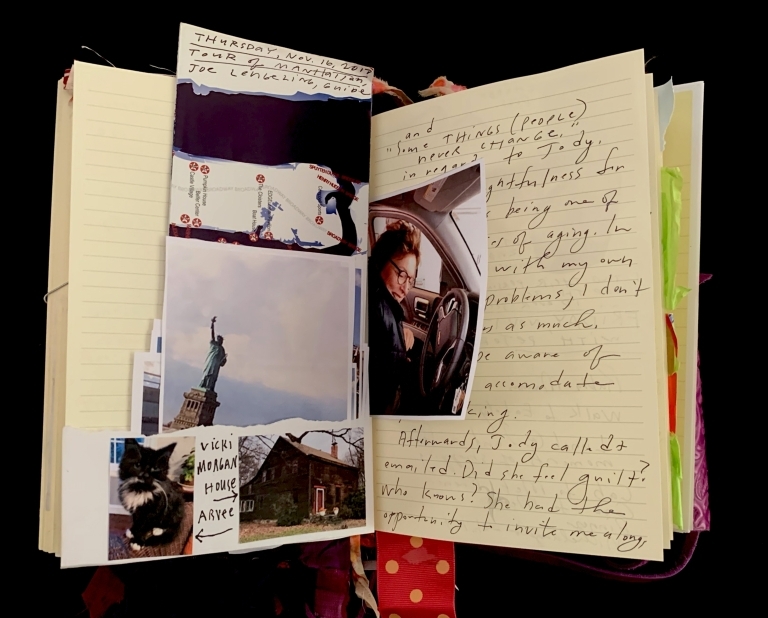 THURSDAY, NOV. 16, 2017
TOUR OF MANHATTAN
JOE LENGELING, GUIDE
VICKI
MORGAN
HOUSE
ARVEE
and
"SOME THINGS (PEOPLE)
NEVER CHANGE,"
in regards to Jody.
ghtfulness for
being one of
es of aging. In
with my own
problems, I don't
as much.
be aware of
accomodate
king.
Afterwards, Jody called &
emailed. Did she feel guilt?
Who knows? She had the
opportunity to invite me along,